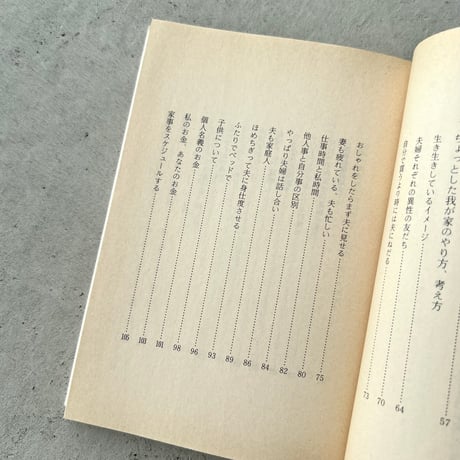 57
ちょっとした我が家のやり方、考え方
生き生きしているイメージ……64
夫婦それぞれの異性の友だち……70
自分で買うより時には夫にねだる……73
おしゃれをしたらまず夫に見せる……75
妻も疲れている、夫も忙しい……80
仕事時間と私時間……82
他人事と自分事の区別……84
やっぱり夫婦は話し合い……86
夫も家庭人……89
ほめちぎって夫に身仕度させる……93
ふたりでベッドで……96
子供について……98
個人名義のお金……101
私のお金、あなたのお金……103
家事をスケジュールする……105